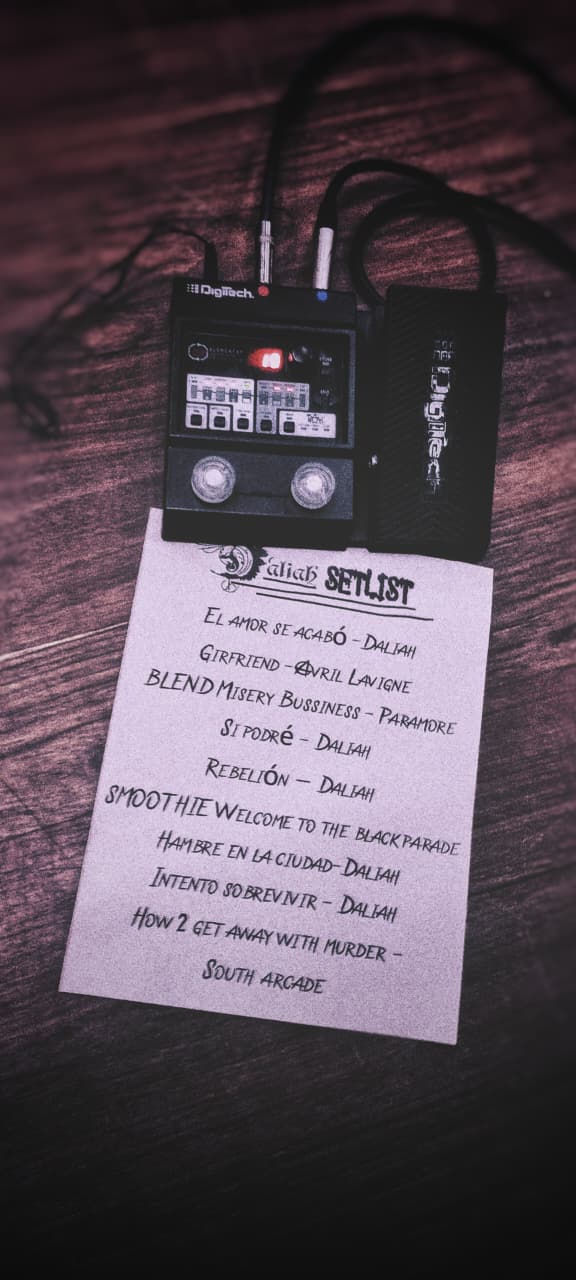 DigiTech.
DigiTech
Daliah SETLIST
EL AMOR SE ACABÓ - DALIAH
GIRFRIEND - AVRIL LAVIGNE
BLEND MISERY BUSSINESS - PARAMORE
SI PODRÉ - DALIAH
REBELIÓN - DALIAH
SMOOTHIE WELCOME TO THE BLACK PARADE
HAMBRE EN LA CIUDAD - DALIAH
INTENTO SOBREVIVIR - DALIAH
HOW 2 GET AWAY WITH MURDER -
SOUTH ARCADE